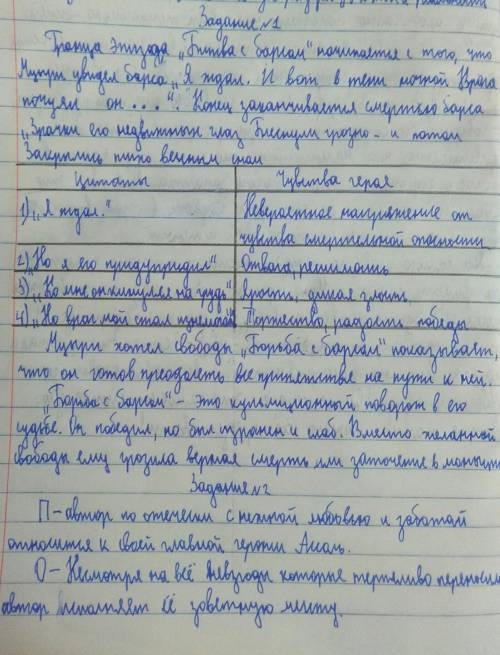 Задание №1
Граница эпизода „Битва с барсом" начинается с того, что
Мцыри увидел барса „Я ждал. И вот в тени ночной Врага
почуял он ...". Конец заканчивается смертью барса
„Зрачки его недвижных глаз Блеснули грозно - и потом
Закрылись тихо вечным сном
Цитаты | Чувства героя
1) „Я ждал." | Невероятное напряжение от
чувства смертельной опасности
2) „Но я его предупредил" | Отвага, решимость
3) „Ко мне он кинулся на грудь" | ярость, дикая злость
4) „Но враг мой стал | Торжество, радость победы
Мцыри хотел свободы „Борьба с барсом" показывает,
что он готов преодолеть все припятствия на пути к ней.
„Борьба с барсом" - это кульмиционный поворот в его
судьбе. Он победил, но был изранен и слаб. Вместо желанной
свободы ему грозила верная смерть или заточение в
Задание №2
П - автор по отечески с нежной любовью и заботай
относится к своей главной героини Ассоль.
О - Несмотря на всё невзгоды которые терпеливо
автор исполняет её заветную мечту.